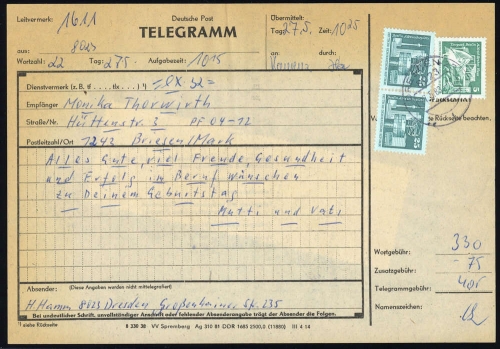 Leitvermerk: 1611
Deutsche Post
TELEGRAMM
Übermittelt:
Tag: 27.5. Zeit: 1025
aus: 8023
Wortzahl: 22 Tag: 27.5. Aufgabezeit: 1015
an: durch:
Dienstvermerk (z. B. tf . . . . tlx . . . ) =LX S2=
Empfänger Monika Thorwirth
Straße/Nr. Hüttenstr. 3 PF 04-12
Postleitzahl/Ort 1242 Briesen/Mark
Alles Gute, viel Freude, Gesundheit
und Erfolg im Beruf wünschen
zu Deinem Geburtstag
Mutti und Vati
Rückseite beachten.
Wortgebühr: 330
Zusatzgebühr: -75
Telegrammgebühr: 405
Namenszeichen:
Absender: (Diese Angaben werden nicht mittelegrafiert)
H. Hamm 8023 Dresden Großenhainer Str. 235
Bei undeutlicher Schrift, unvollständiger Anschrift oder fehlender Absenderangabe trägt der Absender die Folgen.
siehe Rückseite
B 230 38 VV Spremberg Ag 310 81 DDR 1685 2500,0 (11880) III 4 14
25
25
5